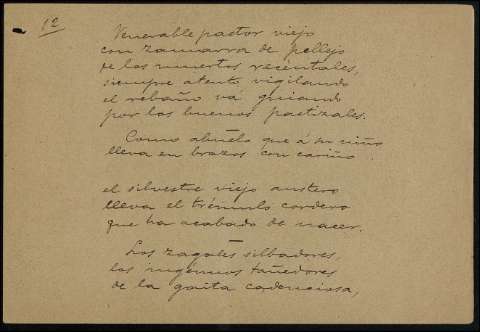 1º
Venerable pastor viejo
con zamarra de pellejo
de los muertos recentales,
siempre atento vigilando
el rebaño vá guiando
por los buenos pastizales.
Como abuelo que á su niño
lleva en brazos con cariño
el silvestre viejo austero
lleva el trémulo cordero
que ha acabado de nacer.
Los zagales silbadores,
los ingenuos tañedores
de la gaita cadenciosa,